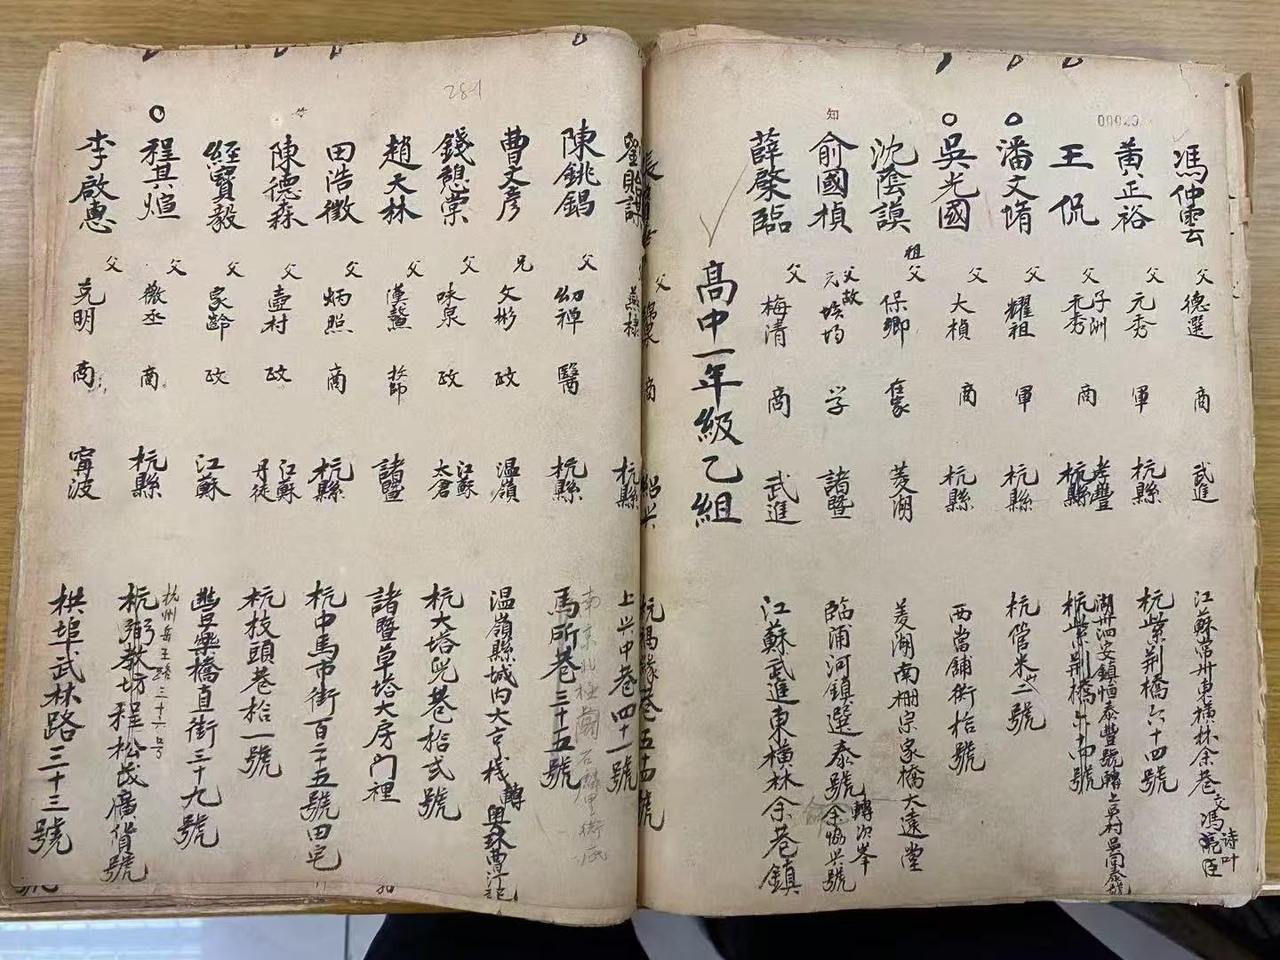 00020
馮仲雲 父 德選 商 武進 江蘇常州東橫林余巷 交馮 詩叶
黃正裕 父 元秀 軍 杭縣 杭紫荊橋六十四號
王侃 父 子洲 元秀 商 孝豐 杭縣 湖州泗安鎮恒泰豐號轉上吳村吳同泰號 杭紫荊橋
潘文堉 父 耀祖 軍 杭縣 杭管米 二號
吳光國 父 大楨 商 杭縣 西當鋪街拾號
沈蔭謨 祖父 保卿 在家 菱湖 菱湖南柵宗家橋大遠堂
知
俞國楨 父故 兄 培均 学 諸暨 臨浦河鎮選泰號 余協興號 轉次峯
薛棨臨 父 梅清 商 武進 江蘇武進東橫林余巷鎮
高中一年級乙組
張 父 商 紹興 杭福緣巷五十四號
劉貽謀 燕棣 杭縣 上興中巷四十一號
陳銚錫 父 幼禅 醫 杭縣 馬所巷三十五號 南京北極閣
曹文彥 兄 文彬 政 温嶺 温嶺縣城内大
281
錢憩棠 父 味泉 政 江蘇太倉 杭大塔兒巷拾弍號
趙大林 父 漢鰲 諸暨 諸暨草塔大房门裡
田浩徵 父 炳照 商 杭縣 杭中馬市街百二十五號田宅
陳德森 父 壺村 政 江蘇丹徒 杭枝頭巷拾一號
經寶毅 父 家齡 政 江蘇 豐樂橋直街三十九號
程其煊 父 薇丞 商 杭縣 杭弼教坊程松茂廣貨號 杭州岳王路三十六号
李啟惠 父 克明 商 甯波 拱埠武林路三十三號